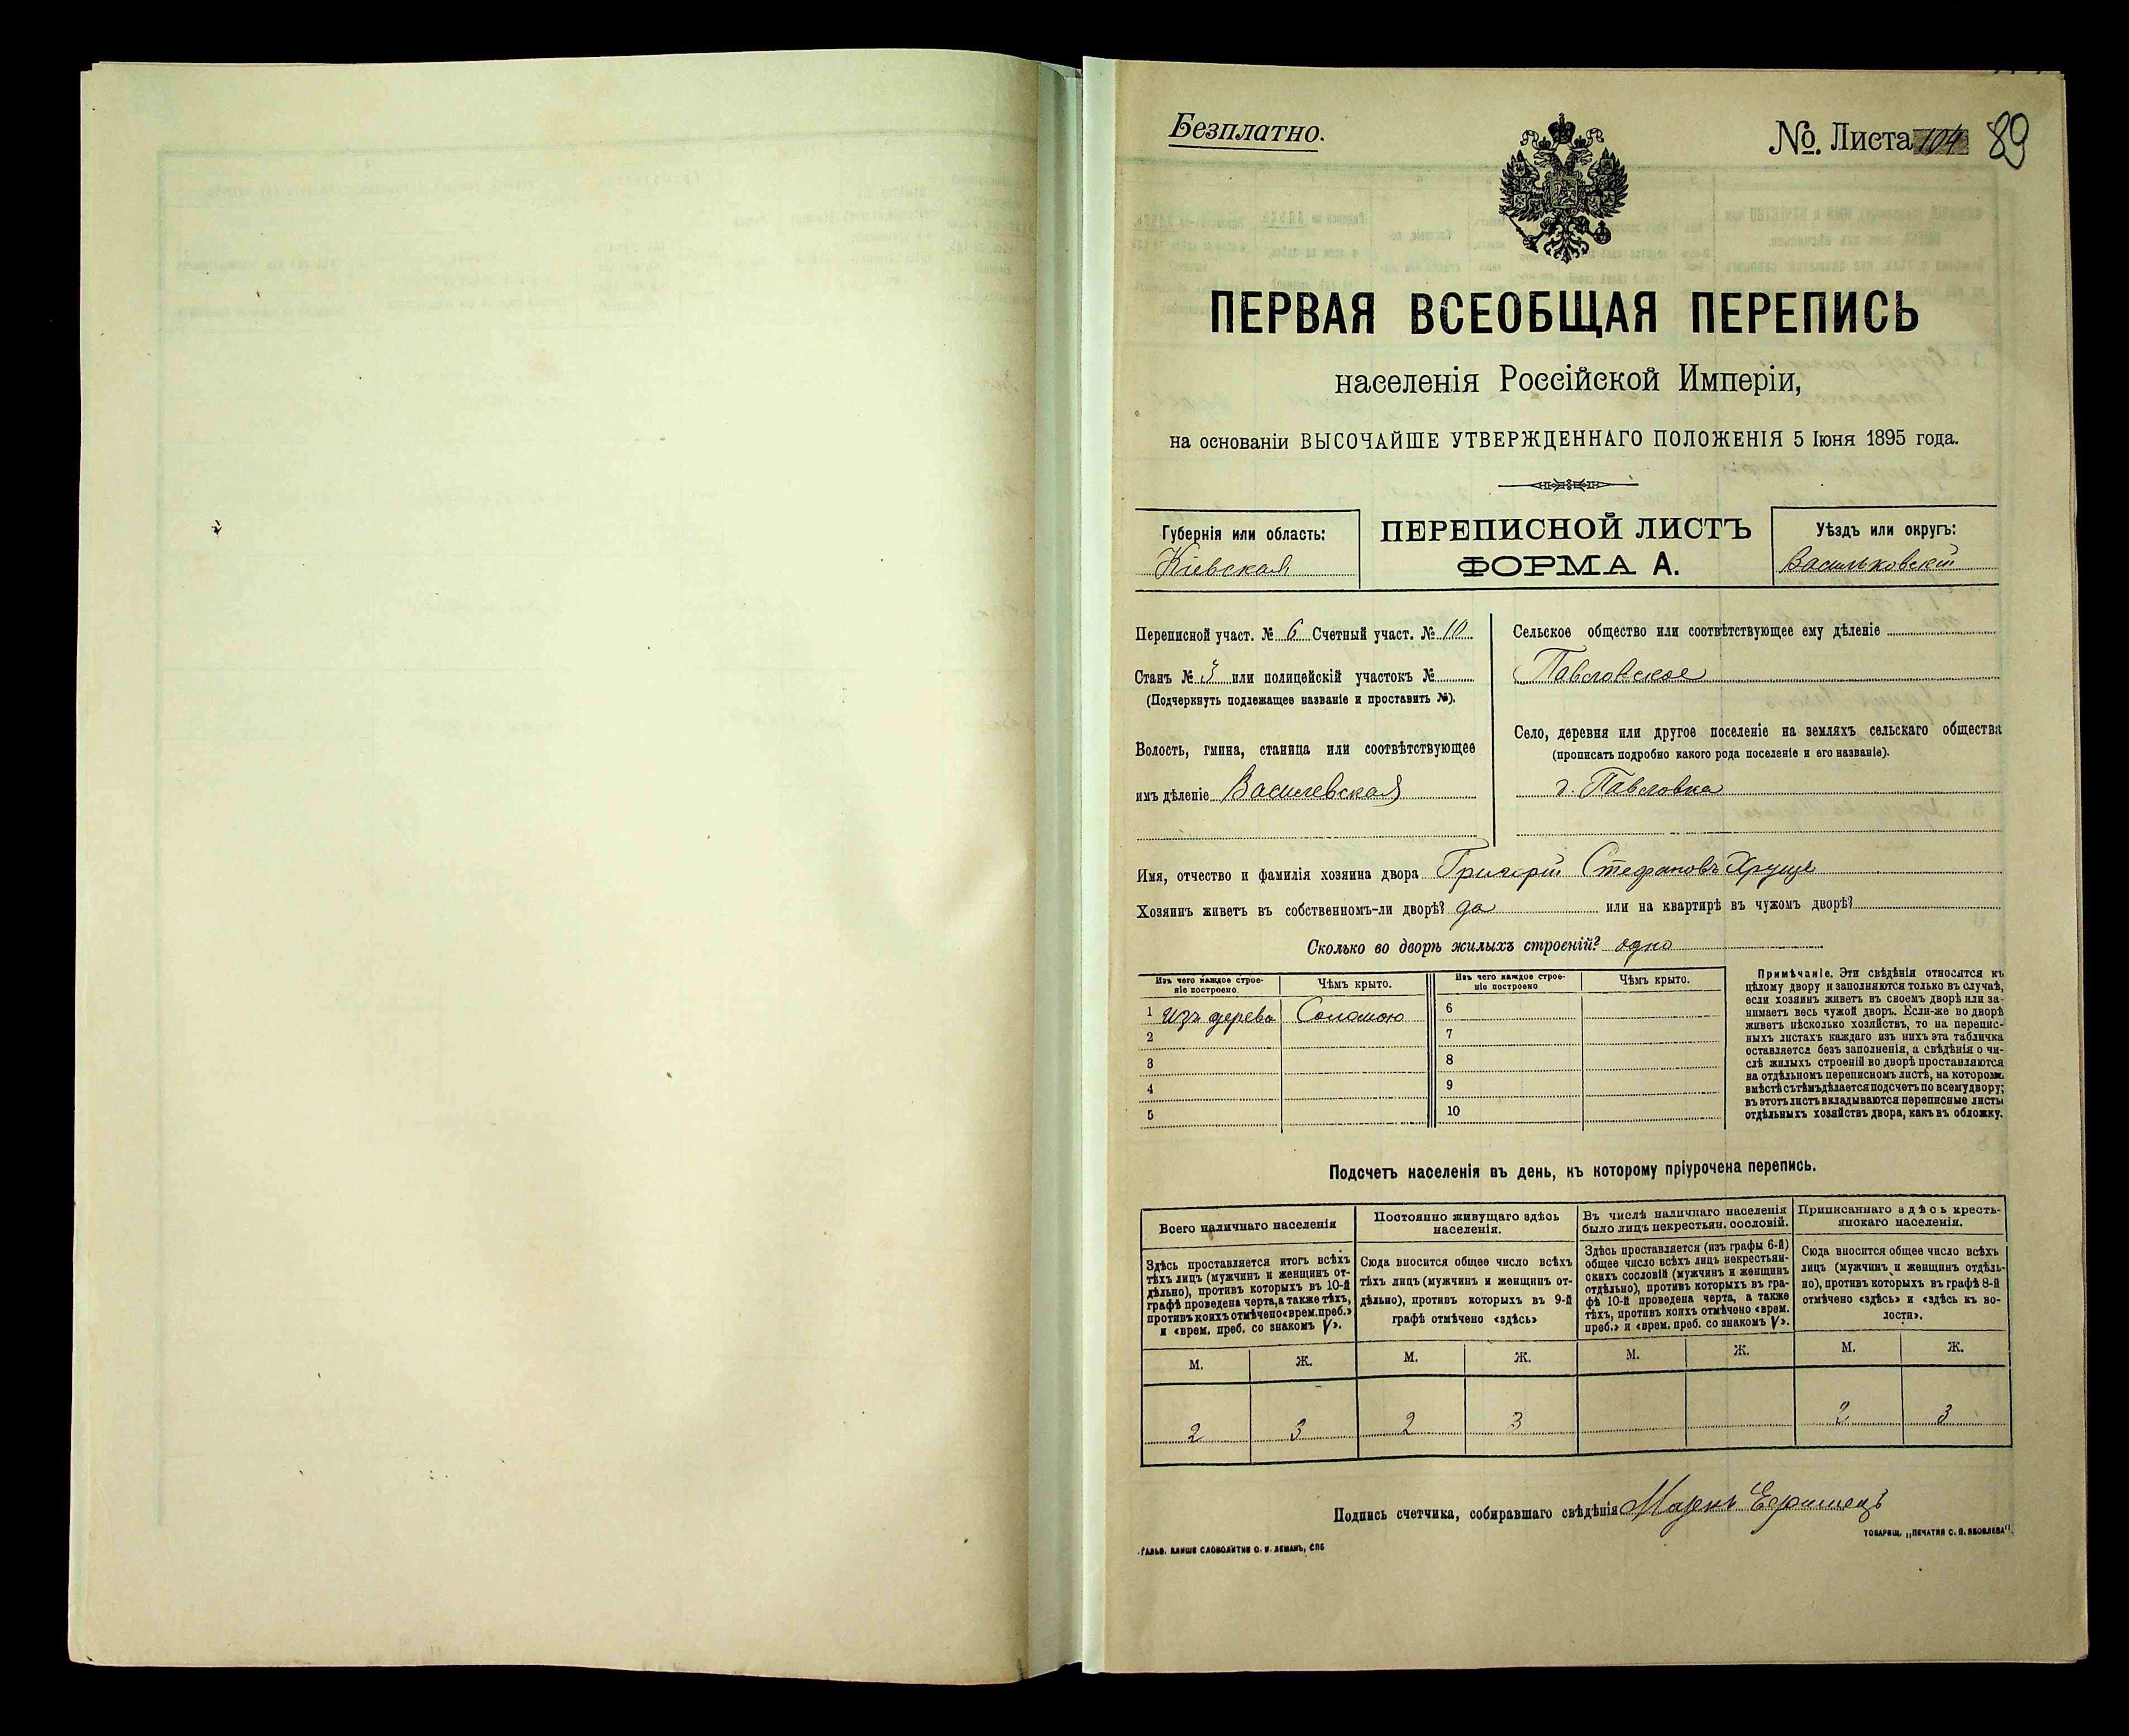 Безплатно.
№. Листа 104 89
ПЕРВАЯ ВСЕОБЩАЯ ПЕРЕПИСЬ
населенія Россійской Имперіи,
на основаніи ВЫСОЧАЙШЕ УТВЕРЖДЕННАГО ПОЛОЖЕНІЯ 5 Іюня 1895 года.
Губернія или область:
Кіевская
ПЕРЕПИСНОЙ ЛИСТЪ
ФОРМА А.
Уѣздъ или округъ:
Васильковскій
Переписной участ. № 6 Счетный участ. № 10
Станъ № 3 или полицейскій участокъ №
(Подчеркнуть подлежащее названіе и проставить №).
Волость, гмина, станица или соотвѣтствующее
имъ дѣленіе Василевская
Сельское общество или соотвѣтствующее ему дѣленіе
Павловское
Село, деревня или другое поселеніе на земляхъ сельскаго общества
(прописать подробно какого рода поселеніе и его названіе).
д. Павловка
Имя, отчество и фамилія хозяина двора Григорій Стефановъ Хрущъ
Хозяинъ живетъ въ собственномъ-ли дворѣ? да или на квартирѣ въ чужомъ дворѣ?
Сколько во дворѣ жилыхъ строеній? одно
Изъ чего каждое строеніе построено
Чѣмъ крыто.
Изъ чего каждое строеніе построено
Чѣмъ крыто.
1 Изъ дерева Соломою 6
2 7
3 8
4 9
5 10
Примѣчаніе. Эти свѣдѣнія относятся къ
цѣлому двору и заполняются только въ случаѣ,
если хозяинъ живетъ въ своемъ дворѣ или за-
нимаетъ весь чужой дворъ. Если-же во дворѣ
живетъ нѣсколько хозяйствъ, то на перепис-
ныхъ листахъ каждаго изъ нихъ эта табличка
оставляется безъ заполненія, а свѣдѣнія о чи-
слѣ жилыхъ строеній во дворѣ проставляются
на отдѣльномъ переписномъ листѣ, на которомъ
вмѣстѣ съ тѣмъ дѣлается подсчетъ по всему двору;
въ этотъ листъ вкладываются переписные листы
отдѣльныхъ хозяйствъ двора, какъ въ обложку.
Подсчетъ населенія въ день, къ которому пріурочена перепись.
Всего наличнаго населенія
Здѣсь проставляется итогъ всѣхъ
тѣхъ лицъ (мужчинъ и женщинъ от-
дѣльно), противъ которыхъ въ 10-й
графѣ проведена черта, а также тѣхъ,
противъ коихъ отмѣчено «врем. преб.»
и «врем. преб. со знакомъ V».
Постоянно живущаго здѣсь
населенія.
Сюда вносится общее число всѣхъ
тѣхъ лицъ (мужчинъ и женщинъ от-
дѣльно), противъ которыхъ въ 9-й
графѣ отмѣчено «здѣсь»
Въ числѣ наличнаго населенія
было лицъ некрестьян. сословій.
Здѣсь проставляется (изъ графы 6-й)
общее число всѣхъ лицъ некрестьян-
скихъ сословій (мужчинъ и женщинъ
отдѣльно), противъ которыхъ въ гра-
фѣ 10-й проведена черта, а также
тѣхъ, противъ коихъ отмѣчено «врем.
преб.» и «врем. преб. со знакомъ V».
Приписаннаго здѣсь кресть-
янскаго населенія.
Сюда вносится общее число всѣхъ
лицъ (мужчинъ и женщинъ отдѣль-
но), противъ которыхъ въ графѣ 8-й
отмѣчено «здѣсь» и «здѣсь къ во-
лости».
М. Ж. М. Ж. М. Ж. М. Ж.
2 3 2 3 2 3
Подпись счетчика, собиравшаго свѣдѣнія Маркъ
ТОВАРИЩ. „ПЕЧАТНЯ С. П. ЯКОВЛЕВА".
ГАЛЬВ. КЛИШЕ СЛОВОЛИТНИ О. И. ЛЕМАНЪ, СПБ